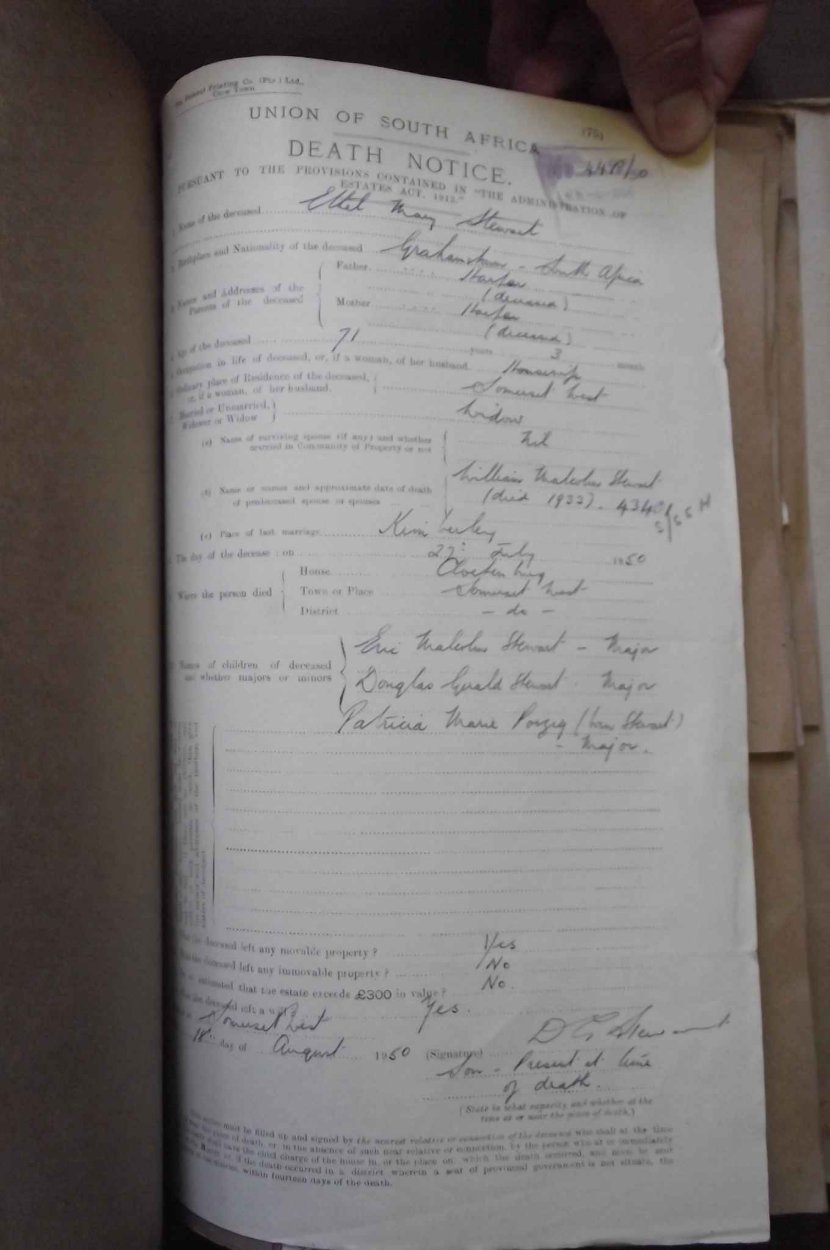 Printing Co. (Pty.) Ltd.,
Cape Town
(75)
UNION OF SOUTH AFRICA
DEATH NOTICE.
PURSUANT TO THE PROVISIONS CONTAINED IN "THE ADMINISTRATION OF
ESTATES ACT, 1913."
Name of the deceased Ethel Mary Stewart
Birthplace and Nationality of the deceased Grahamstown - South Africa
Names and Addresses of the Parents of the deceased
Father Harper
(deceased)
Mother Harper
(deceased)
Age of the deceased 71 years 3 months
Occupation in life of deceased, or, if a woman, of her husband Housewife
Ordinary place of Residence of the deceased, or, if a woman, of her husband. Somerset West
Married or Unmarried, Widower or Widow Widow
(a) Name of surviving spouse (if any) and whether married in Community of Property or not Nil
(b) Name or names and approximate date of death of predeceased spouse or spouses William Malcolm Stewart
(died 1933).
(c) Place of last marriage Kimberley
The day of the decease : on 27: July 1950
Where the person died
House
Town or Place Somerset West
District - do -
Names of children of deceased and whether majors or minors
Eric Malcolm Stewart - Major
Douglas Gerald Stewart - Major
Patricia Marie (born Stewart)
- Major.
deceased left any movable property ? Yes
deceased left any immovable property ? No
estimated that the estate exceeds £300 in value ? No.
the deceased left a will Yes.
Somerset West
18th day of August 1950
(Signature) D G Stewart
Son - Present at time
of death.
(State in what capacity and whether at the
time at or near the place of death.)
must be filled up and signed by the nearest relative or connection of the deceased who shall at the time
of death, or in the absence of such near relative or connection, by the person who at or immediately
the chief charge of the house in, or the place on, which the death occurred, and must be sent
if the death occurred in a district wherein a seat of provincial government is not situate, the
within fourteen days of the death.